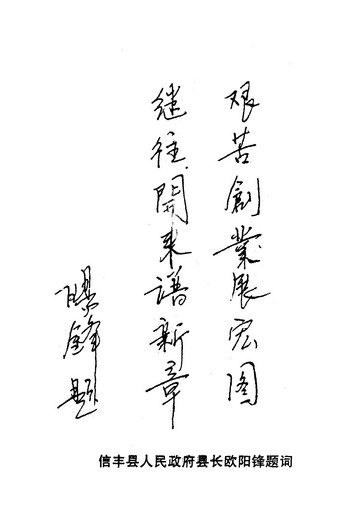 艰苦創業展宏图
继往開来谱新章
陽鋒题
信丰县人民政府县长欧阳锋题词